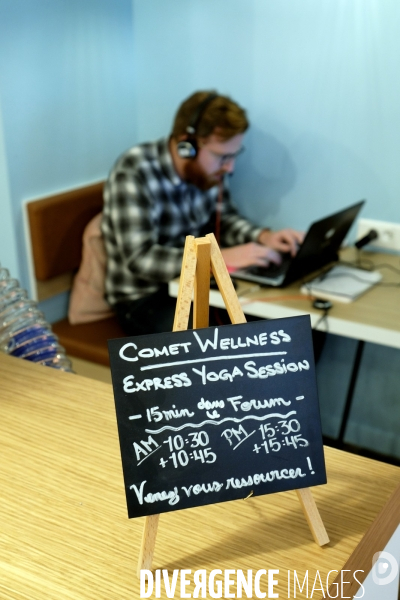 COMET WELLNESS
EXPRESS YOGA SESSION
- 15 min dans le FORUM -
AM - 10:30 PM - 15:30
+ 10:45 + 15:45
Venez vous ressourcer !
DIVERGENCE IMAGES